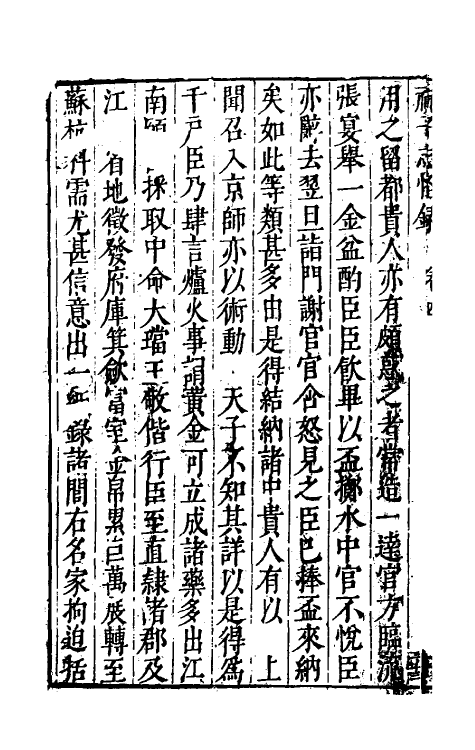 祝子志怪錄 卷四
用之留都貴人亦有頗惑之者常造一達官方臨流
張宴舉一金盆酌臣臣飲畢以盃擲水中官不悅臣
亦辭去翌旦詣門謝官官含怒見之臣已捧盃來納
矣如此等類甚多由是得結納諸中貴人有以 上
聞召入京師亦以術動 天子不知其詳以是得為
千戶臣乃肆言爐火事謂黃金可立成諸藥多出江
南 採取中命大璫王敬偕行臣至直隸諸郡及
江 省地徵發府庫箕斂富室金帛累巨萬展轉至
蘇杭 需尤甚信意出一 錄諸閭右名家拘迫括